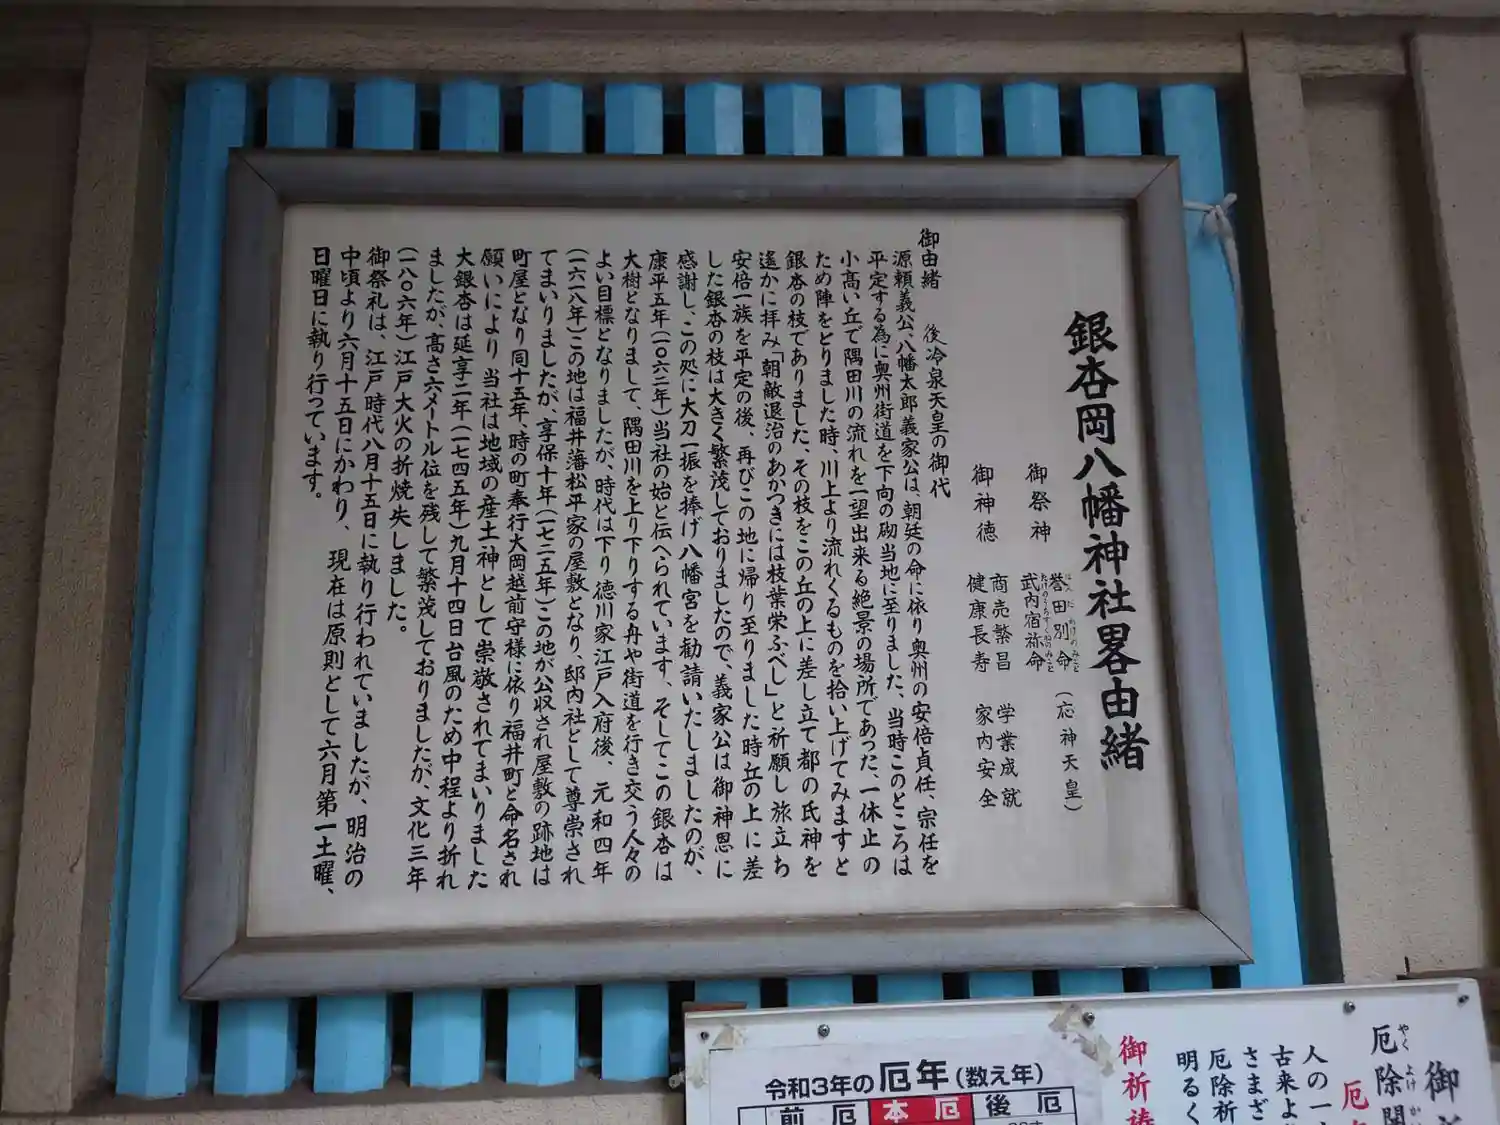 銀杏岡八幡神社畧由緒
御祭神
誉田別命(応神天皇)
武内宿祢命
御神徳
商売繁昌 学業成就
健康長寿 家内安全
御由緒 後冷泉天皇の御代
源頼義公、八幡太郎義家公は、朝廷の命に依り奥州の安倍貞任、宗任を
平定する為に奥州街道を下向の砌当地に至りました、当時このところは
小高い丘で隅田川の流れを一望出来る絶景の場所であった、一休止の
ため陣をとりました時、川上より流れくるものを拾い上げてみますと
銀杏の枝でありました、その枝をこの丘の上に差し立て都の氏神を
遙かに拝み「朝敵退治のあかつきには枝葉栄ふべし」と祈願し旅立ち
安倍一族を平定の後、再びこの地に帰り至りました時丘の上に差
した銀杏の枝は大きく繁茂しておりましたので、義家公は御神恩に
感謝し、この処に大刀一振を捧げ八幡宮を勧請いたしましたのが、
康平五年(一〇六二年)当社の始と伝へられています、そしてこの銀杏は
大樹となりまして、隅田川を上り下りする舟や街道を行き交う人々の
よい目標となりましたが、時代は下り徳川家江戸入府後、元和四年
(一六一八年)この地は福井藩松平家の屋敷となり、邸内社として尊崇され
てまいりましたが、享保十年(一七二五年)この地が公収され屋敷の跡地は
町屋となり同十五年、時の町奉行大岡越前守様に依り福井町と命名され
願いにより当社は地域の産土神として崇敬されてまいりました
大銀杏は延享二年(一七四五年)九月十四日台風のため中程より折れ
ましたが、高さ六メートル位を残して繁茂しておりましたが、文化三年
(一八〇六年)江戸大火の折焼失しました。
御祭礼は、江戸時代八月十五日に執り行われていましたが、明治の
中頃より六月十五日にかわり、現在は原則として六月第一土曜、
日曜日に執り行っています。
令和3年の厄年(数え年)
前厄 本厄 後厄
御祈祷
厄除開
人の一
古来よ
さまざ
厄除祈
明るく